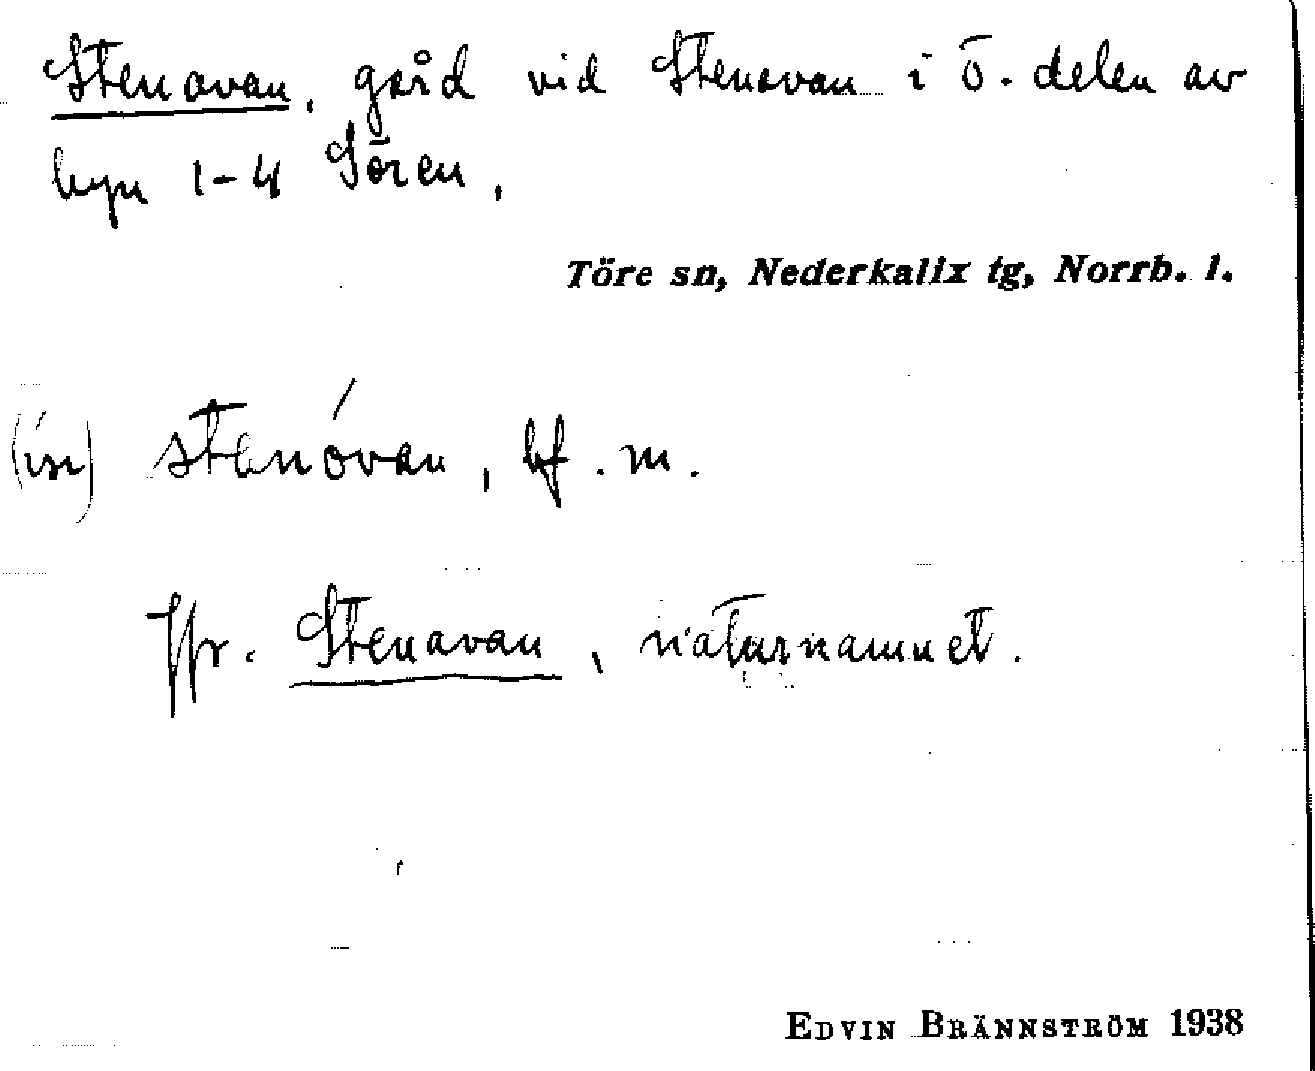 Stenavan, gård vid Stenavan i ö. delen av
byn 1-4 Sören.
Töre sn, Nederkalix tg, Norrb. l.
(in) stenóvan, bf. m.
Jfr. Stenavan, naturnamnet.
EDVIN BRÄNNSTRÖM 1938